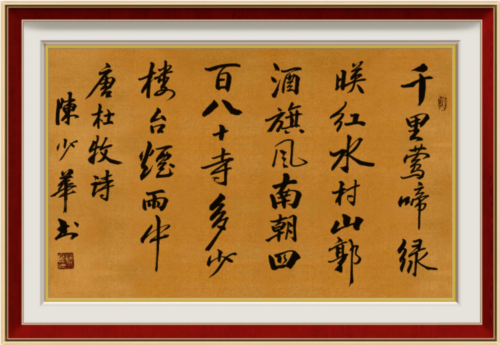 千里莺啼绿
暎红水村山郭
酒旗风南朝四
百八十寺多少
楼台煙雨中
唐杜牧诗
陳少華书